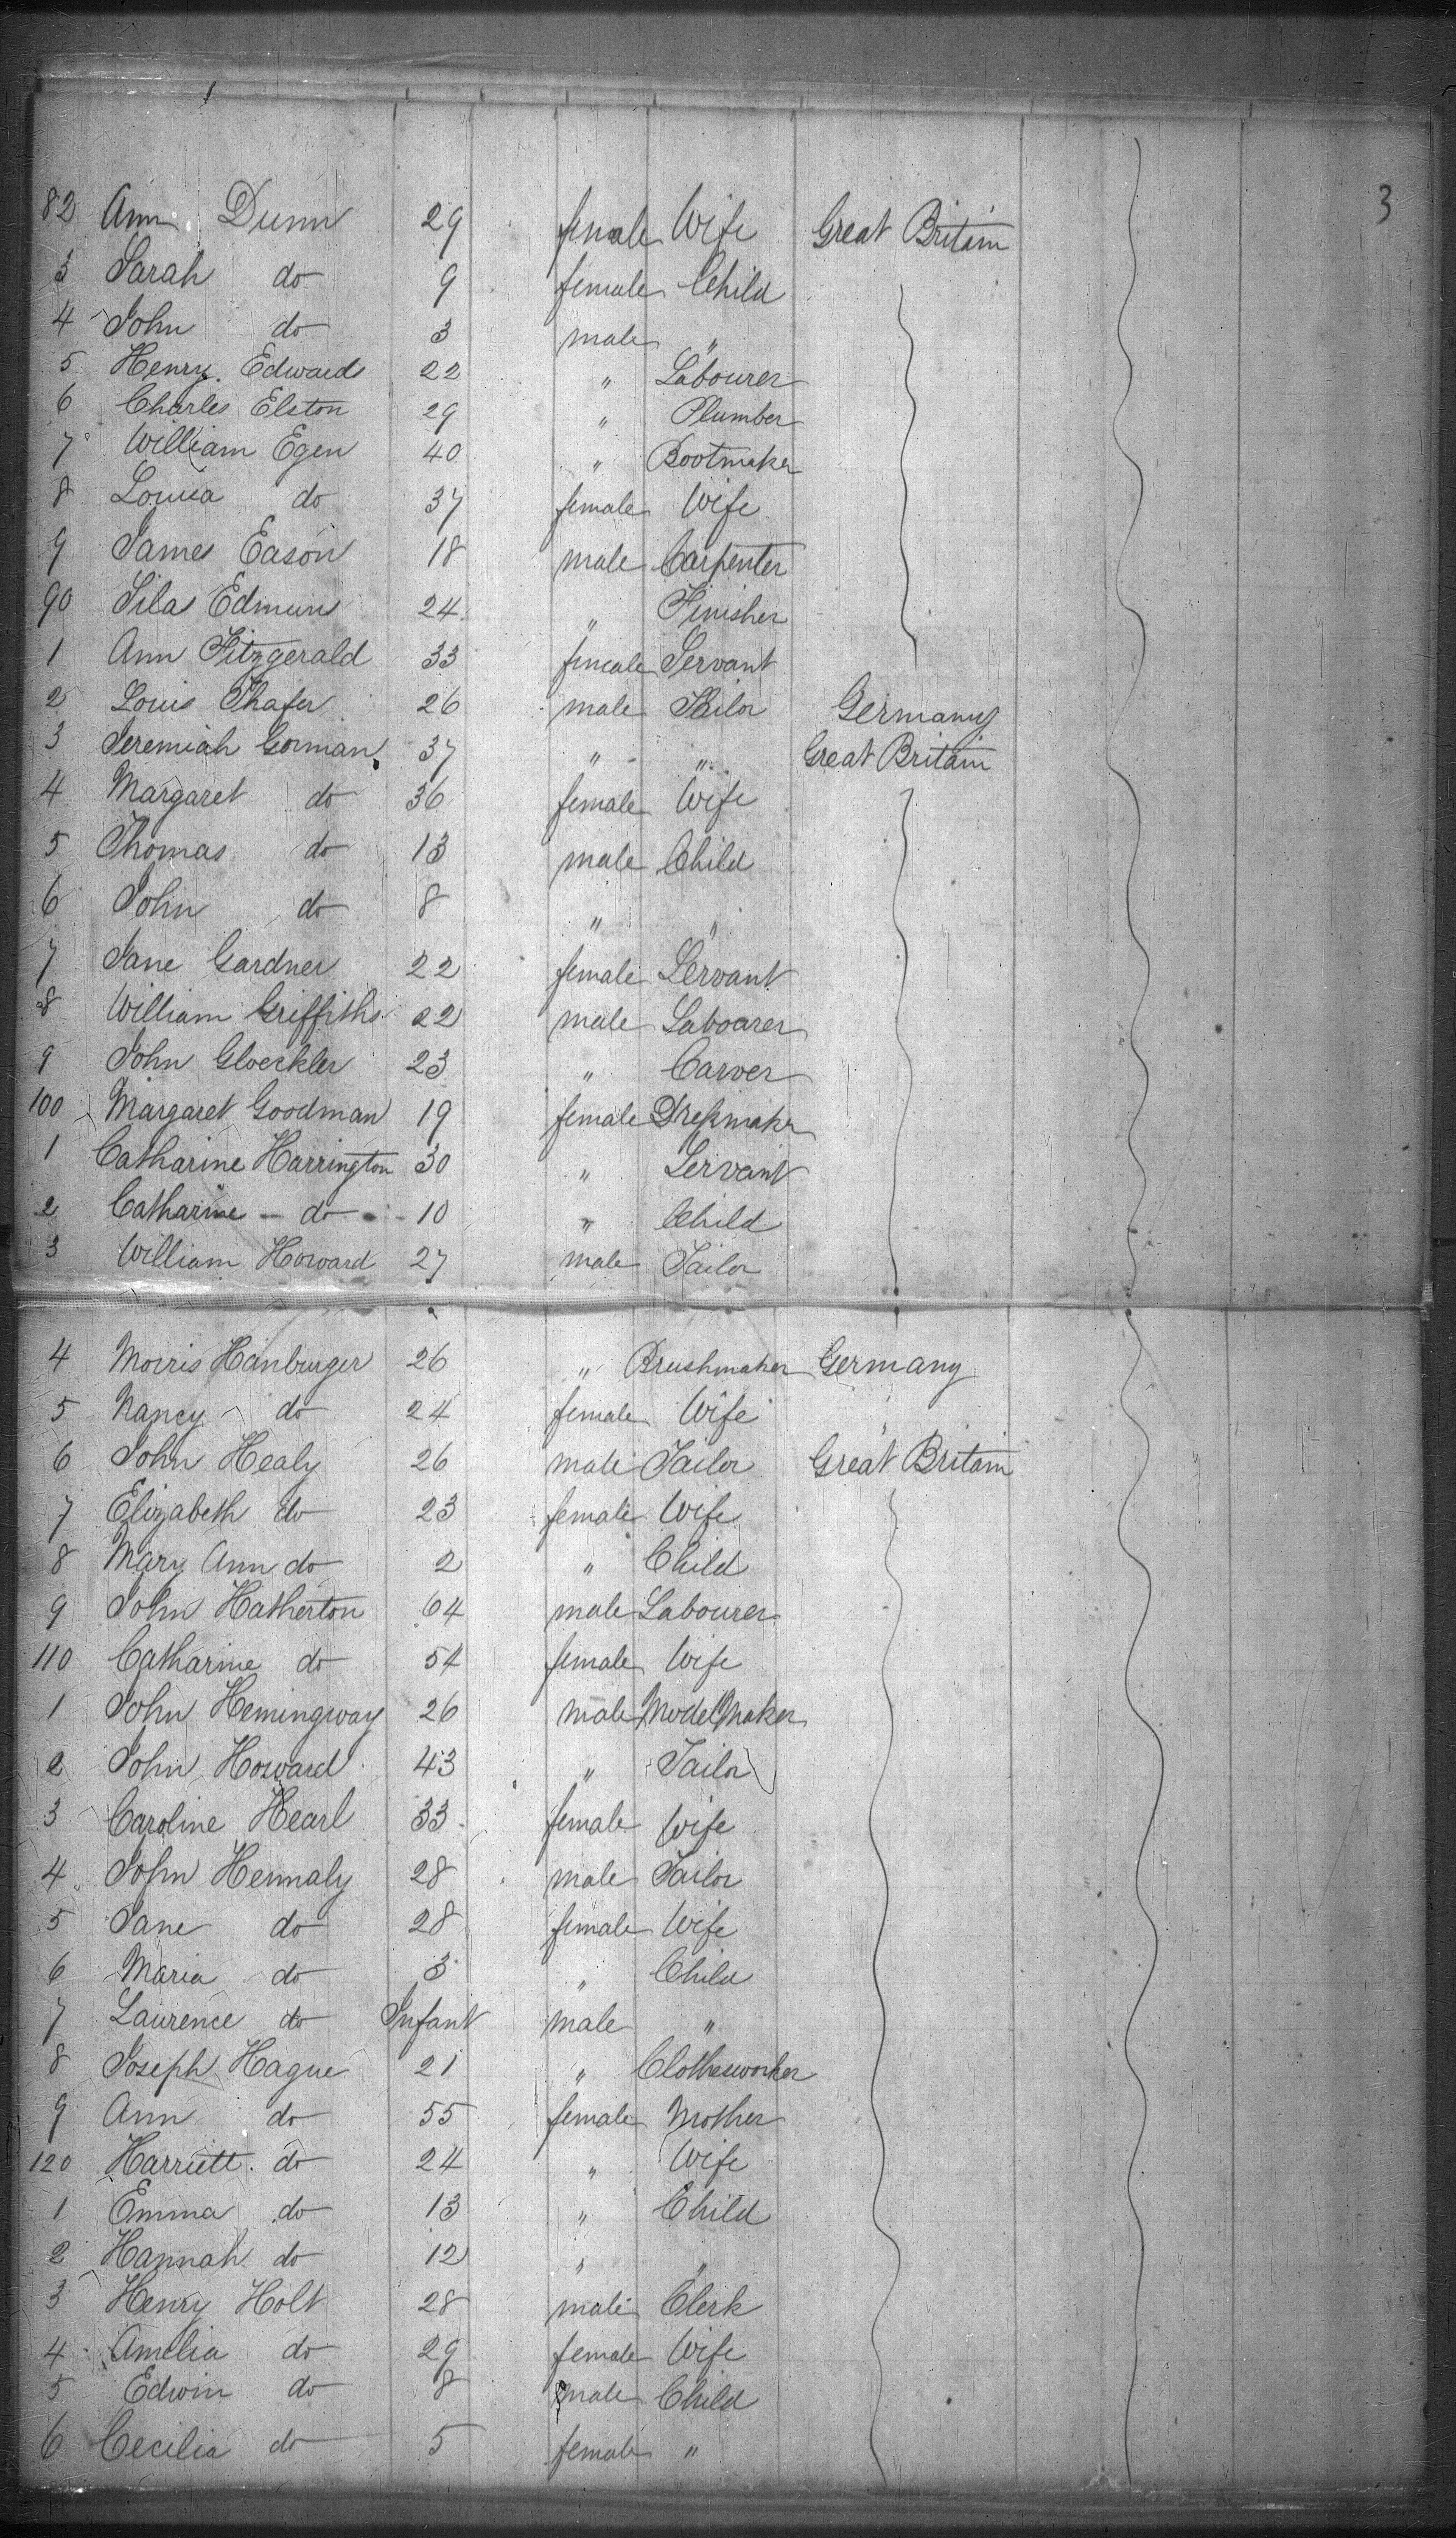 3
82 Ann Dunn 29 female Wife Great Britain
3 Sarah do 9 female Child
4 John do 3 male "
5 Henry Edwards 22 " Labourer
6 Charles Elston 29 " Plumber
7 William Egen 40 " Bootmaker
8 Louisa do 37 female Wife
9 James Eason 18 male Carpenter
90 Silas Edmun 24 " Finisher
1 Ann Fitzgerald 33 female Servant
2 Louis 26 male Tailor Germany
3 Jeremiah Gorman 37 " " Great Britain
4 Margaret do 36 female Wife
5 Thomas do 13 male Child
6 John do 8 " "
7 Jane Gardner 22 female Servant
8 William Griffiths 22 male Labourer
9 John Gloeckler 23 " Carver
100 Margaret Goodman 19 female Dressmaker
1 Catharine Harrington 30 " Servant
2 Catharine do 10 " Child
3 William Howard 27 male Tailor
4 Morris Hanburger 26 " Brushmaker Germany
5 Nancy do 24 female Wife "
6 John Healy 26 male Tailor Great Britain
7 Elizabeth do 23 female Wife
8 Mary Ann do 2 " Child
9 John Hatherton 64 male Labourer
110 Catharine do 54 female Wife
1 John Hemingway 26 male Model Maker
2 John Howard 43 " Tailor
3 Caroline Hearl 33 female Wife
4 John Hennaly 28 male Tailor
5 Jane do 28 female Wife
6 Maria do 3 " Child
7 Laurence do Infant male "
8 Joseph Hague 21 " Clothesworker
9 Ann do 55 female Mother
120 Harriett do 24 " Wife
1 Emma do 13 " Child
2 Hannah do 12 " "
3 Henry Holt 28 male Clerk
4 Amelia do 29 female Wife
5 Edwin do 8 male Child
6 Cecilia do 5 female "